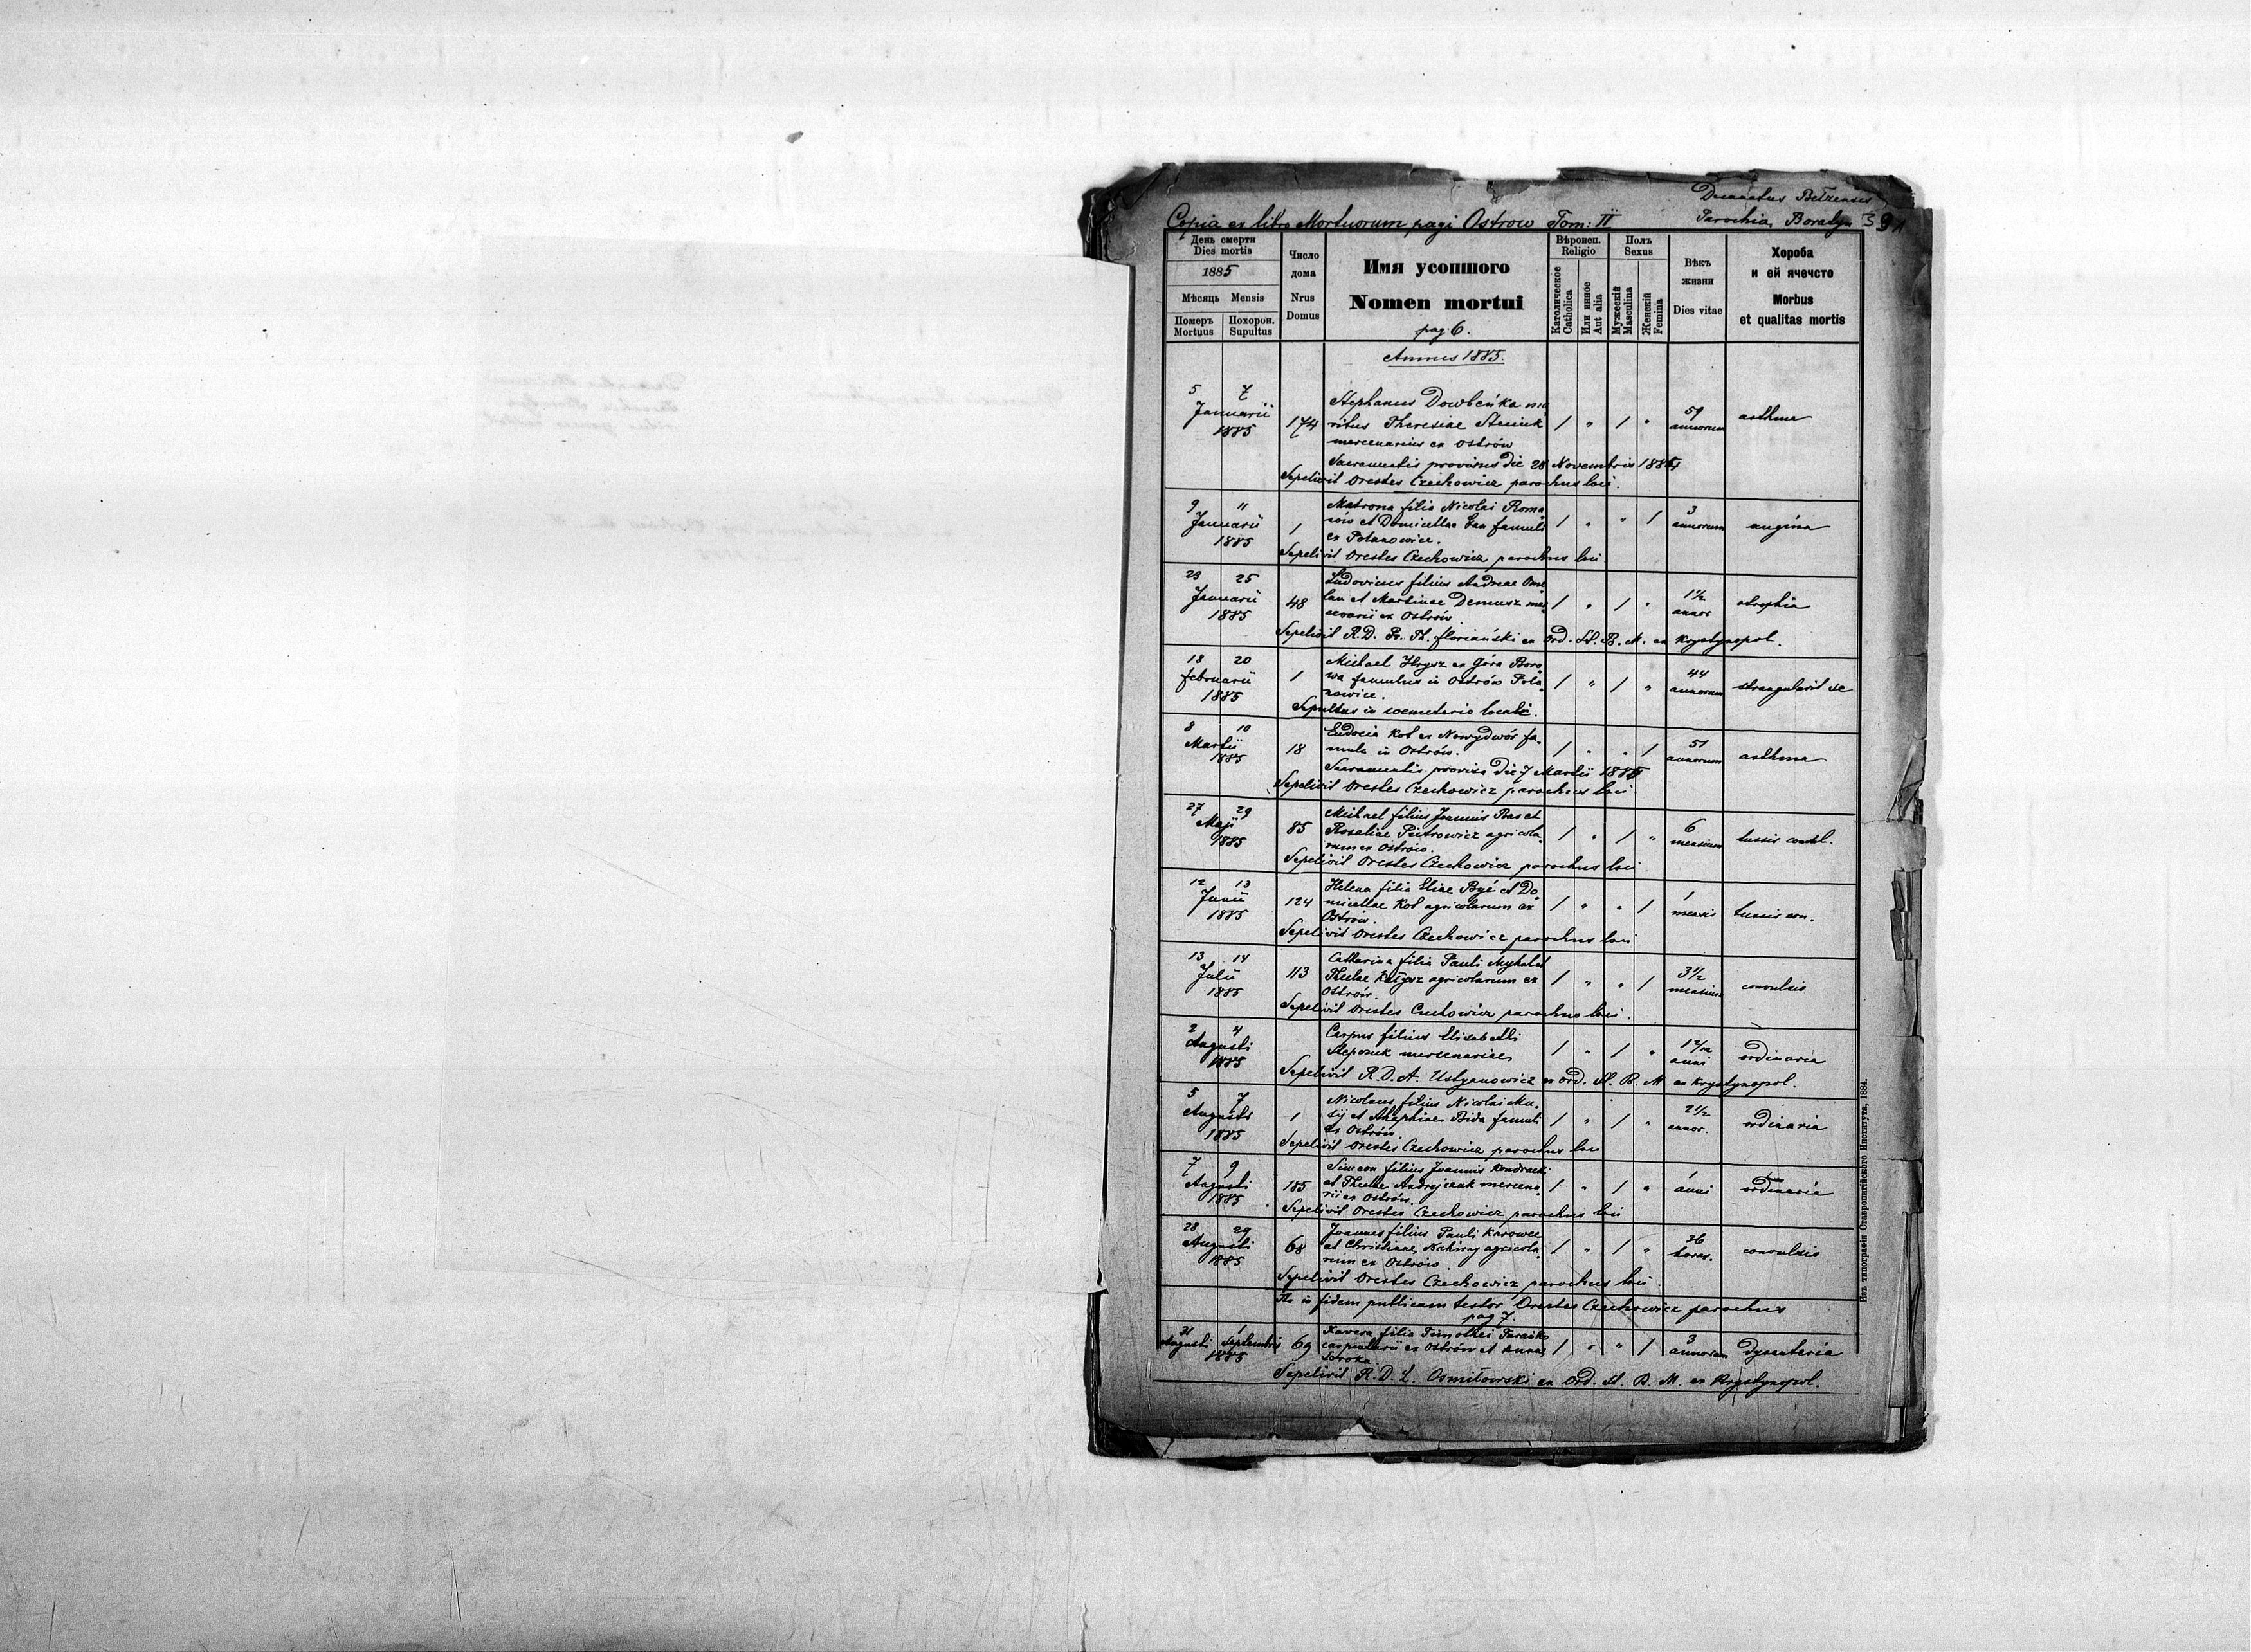 Decanatus Bełzensis
Copia ex libro Mortuorum pagi Ostrow Tom: II Parochia Boratyn 391
День смерти
Dies mortis
1885
Мѣсяць Mensis
Померъ Похорон.
Mortuus Supultus
Число
дома
Nrus
Domus
Имя усопшого
Nomen mortui
pag 6.
Вѣроисп.
Religio
Католическое
Catholica
Или инное
Aut alia
Полъ
Sexus
Мужескій
Masculina
Женскій
Femina
Вѣкъ
жизни
Dies vitae
Хороба
и ей ячечсто
Morbus
et qualitas mortis
Annus 1885.
5 7
Januarii
1885
174
Stephanus Dowbeńka ma
ritus Theresiae
mercenarius ex Ostrów
Sacramentis provisus die 28 Novembris 1884
Sepelivit Orestes Czechowicz parochus loci.
1 " 1 "
59
annorum
asthma
9 11
Januarii
1885
1
Matrona filia Nicolai Roma
nów et Domicellae famuli
ex Polanowice.
Sepelivit Orestes Czechowicz parochus loci
1 " " 1
3
annorum
angina
23 25
Januarii
1885
48
Ludovicus filius Andreae Ome
lan et Martinae Demusz mer
cenarii ex Ostrów.
Sepelivit R.D. Fr. Th. Floriański ex Ord. St. B. M. ex Krystynopol.
1 " 1 "
1 1/2
annor
atrophia
18 20
februarii
1885
1
Michael Hrysz ex Góra Boro
wa famulus in Ostrów Pola
nowice.
Sepultus in coemeterio locali.
1 " 1 "
44
annorum
strangulavit se
8 10
Martii
1885
18
Eudocia Kot ex Nowydwór fa-
mula in Ostrów.
Sacramentis provisa die 7 Martii 1885
Sepelivit Orestes Czechowicz parochus loci
1 " " 1
51
annorum
asthma
27 29
Maji
1885
85
Michael filius Joannis Bas et
Rosaliae Pietrowicz agricola
rum ex Ostrów.
Sepelivit Orestes Czechowicz parochus loci
1 " 1 "
6
mensium
tussis convl.
12 13
Junii
1885
124
Helena filia Eliae Być et Do
micellae Kot agricolarum ex
Ostrów.
Sepelivit Orestes Czechowicz parochus loci
1 " " 1
1
mensis
tussis con.
13 14
Julii
1885
113
Catharina filia Pauli
Theclae agricolarum ex
Ostrów.
Sepelivit Orestes Czechowicz parochus loci.
1 " " 1
3 1/2
mensium
convulsis
2 4
Augusti
1885
Carpus filius Elisabethi
mercenariae
Sepelivit R.D.A. Ustyanowicz ex ord. St. B. M ex Krystynopol.
1 " 1 "
anni
ordinaria
5 7
Augusti
1885
1
Nicolaus filius Nicolai Mu-
sij et Bida famuli
ex Ostrów
Sepelivit Orestes Czechowicz parochus loci
1 " 1 "
2 1/2
annor.
ordinaria
7 9
Augusti
1885
185
Simeon filius Joannis Kondracki
et Theclae Andrejczuk mercena
rii ex Ostrów.
Sepelivit Orestes Czechowicz parochus loci
1 " 1 "
anni
ordinaria
28 29
Augusti
1885
68
Joannes filius Pauli Karowec
et Christianae Nahirny agricola
rum ex Ostrów.
Sepelivit Orestes Czechowicz parochus loci.
1 " 1 "
36
horas.
convulsis
in fidem publicam testor Orestes Czechowicz parochus
pag 7.
31 1
Augusti Septembris
1885
69
Xavera filia Timothei
carpentarii ex Ostrów et Annae
Soroka
Sepelivit R.D. L. Osmiłowski ex Ord. St. B. M. ex Krystynopol.
1 " " 1
3
annorum
dysenteria
Изъ типографіи Ставропигійского Института, 1884.